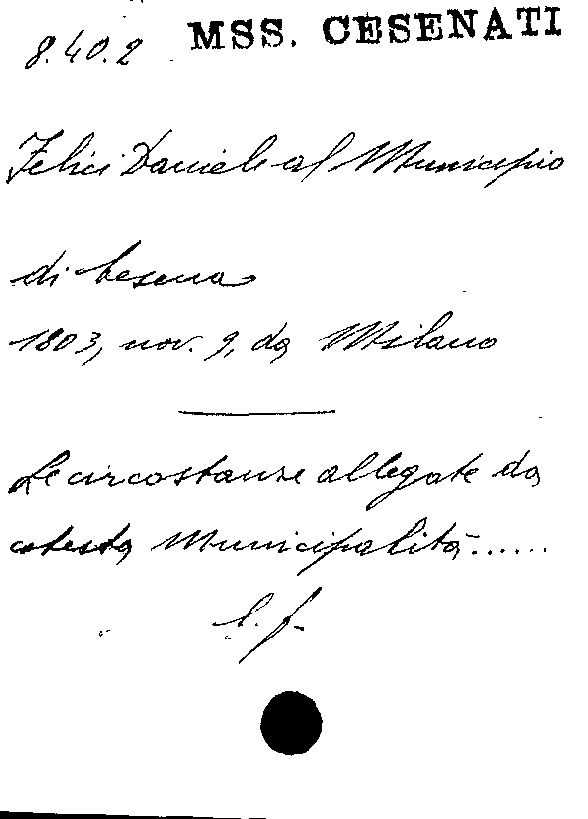 8.40.2 MSS. CESENATI
Felici Daniele al Municipio
di Cesena
1803, nov. 9, da Milano
Le circostanze allegate da
cotesta Municipalità......
l. f.